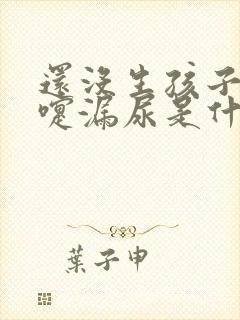 還沒生孩子
嚏漏尿是什
葉子申